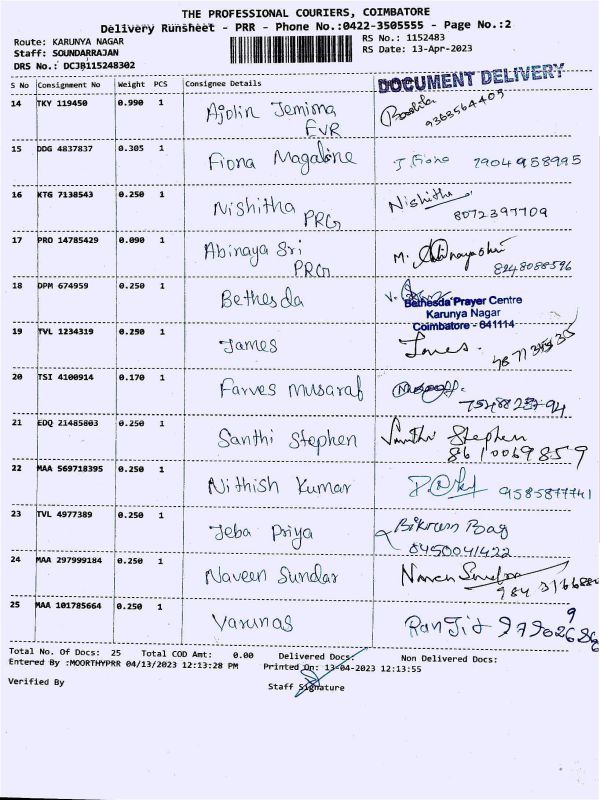 THE PROFESSIONAL COURIERS, COIMBATORE
Delivery Runsheet - PRR - Phone No.:0422-3505555 - Page No.:2
Route: KARUNYA NAGAR
RS No.: 1152483
Staff: SOUNDARRAJAN
RS Date: 13-Apr-2023
DRS No.: DCJB115248302
DOCUMENT DELIVERY
S No Consignment No Weight PCS Consignee Details
14 TKY 119450 0.990 1 Ajolin Jemima
EVR
9368564405
15 DDG 4837837 0.305 1 Fiona Magaline J. Fiona 7904958995
16 KTG 7138543 0.250 1 Nishitha Nishitha
PRG 8072397709
17 PRO 14785429 0.090 1 Abinaya Sri M. Abinayashri
PRG 8248088596
18 DPM 674959 0.250 1 Bethesda
Bethesda Prayer Centre
Karunya Nagar
Coimbatore - 641114
19 TVL 1234319 0.250 1 James James.
20 TSI 4100914 0.170 1 Farves Musaraf
21 EDQ 21485803 0.250 1 Santhi Stephen Santhi Stephen
8610069859
22 MAA 569718395 0.250 1 Nithish Kumar 9585877741
23 TVL 4977389 0.250 1 Jeba Priya Bikram Bag
8450041422
24 MAA 297999184 0.250 1 Naveen Sundar
25 MAA 101785664 0.250 1 Varunas Ranjit
Total No. Of Docs: 25 Total COD Amt: 0.00 Delivered Docs: Non Delivered Docs:
Entered By :MOORTHYPRR 04/13/2023 12:13:28 PM Printed On: 13-04-2023 12:13:55
Verified By Staff Signature